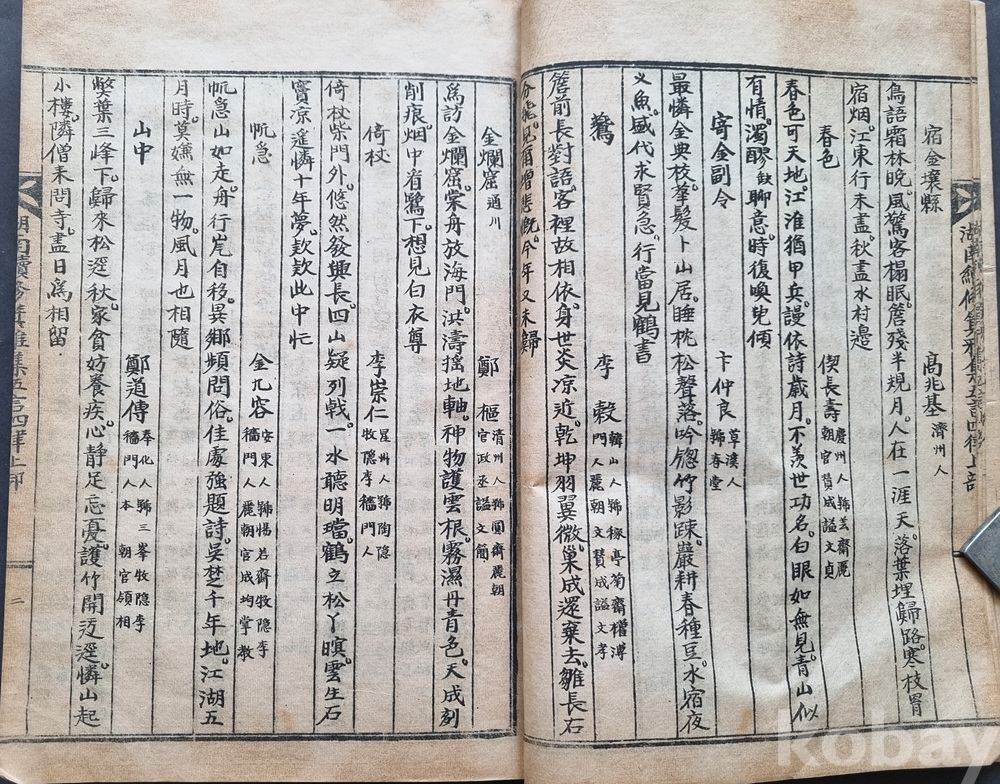 宿金壤縣 高兆基 濟州人
鳥語霜林晚。風驚客榻眠。簷殘半規月。人在一涯天。落葉埋歸路。寒枝罥
宿烟。江東行未盡。秋盡水村邊
春色 偰長壽 慶州人號芸齋麗朝官贊成謚文貞
春色可天地。江淮猶甲兵。謾依詩歲月。不羨世功名。白眼如無見。青山似
有情。濁醪飮聊意。時復喚兒傾
寄金副令 卞仲良 草溪人號春堂
最憐金典校。華髮卜山居。睡枕松聲落。吟窓竹影踈。巖耕春種豆。水宿夜
乂魚。盛代求賢急。行當見鶴書
鷰 李糓 韓山人號稼亭菊齋權溥門人麗朝文贊成謚文孝
簷前長對語。客裡故相依。身世炎凉近。乾坤羽翼微。巢成還棄去。雛長石
分飛。見爾增悲慨。今年又未歸
金爛窟 通川 鄭樞 清州人號圓齋麗朝官政丞謚文簡
爲訪金爛窟。棠舟放海門。洪濤搖地軸。神物護雲根。霧濕丹青色。天成刻
削痕。烟中看鷺下。想見白衣尊
倚杖 李崇仁 星州人號陶隐牧隐李穡門人
倚杖柴門外。悠然發興長。四山疑列戟。一水聽明璫。鶴立松丫暝。雲生石
竇凉。遥憐十年夢。欵欵此中忙
帆急 金九容 安東人號惕若齋牧隐李穡門人麗朝官成均掌教
帆急山如走。舟行岸自移。異鄉頻問俗。佳處強題詩。吳楚千年地。江湖五
月時。莫嫌無一物。風月也相隨
山中 鄭道傳 奉化人號三峯牧隐李穡門人本朝官領相
獘葉三峰下。歸來松逕秋。家貧妨養疾。心静足忘憂。護竹開迃逕。憐山起
小樓。隣僧來問寺。盡日爲相留.
二
kobay